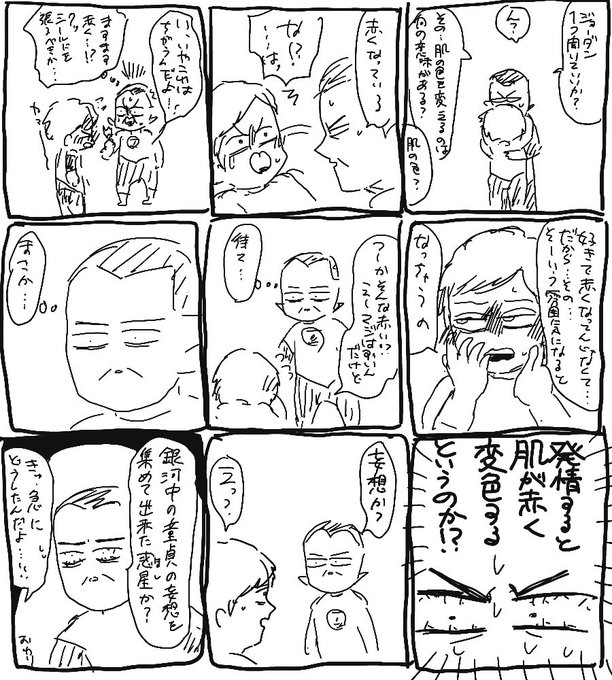 ジョーダン
1つ聞いていいか?
ん?
その…肌の色を変えるのは
何の意味がある?
肌の色?
赤くなっている
な!?
……はっ
い、いやこれは
ちがうんだよ…
ますます
赤く…!?
クッ
シールドを
張るべきか…
好きで赤くなってんじゃなくて…
だから…その…
そーいう雰囲気になると
なっちゃうの
つーかそんな赤い!?
えーマジはずいん
だけど
待て…
まさか…
発情すると
肌が赤く
変色する
というのか!?
妄想か?
えっ?
銀河中の童貞の妄想を
集めて出来た惑星か?
ほし
きゅ急に
どうしたんだよ……
おわり